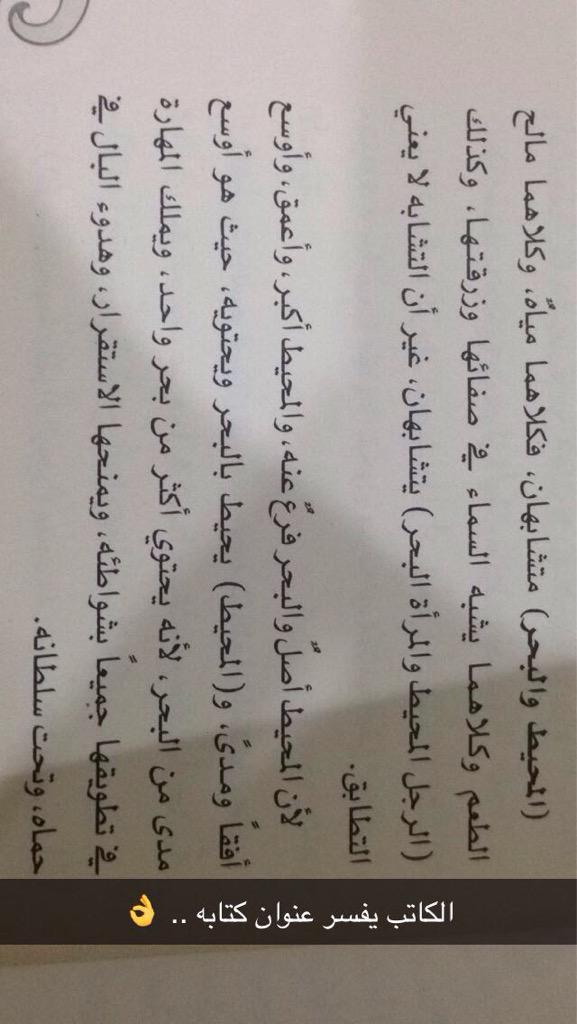 (المحيط والبحر) متشابهان، فكلاهما مياهٌ، وكلاهما مالح
الطعم وكلاهما يشبه السماء في صفائها وزرقتها، وكذلك
(الرجل المحيط والمرأة البحر) يتشابهان، غير أن التشابه لا يعني
التطابق.
لأن المحيط أصلٌ والبحر فرعٌ عنه، والمحيط أكبر، وأعمق، وأوسع
أفقاً ومدىً، و(المحيط) يحيط بالبحر ويحتويه، حيث هو أوسع
مدى من البحر، لأنه يحتوي أكثر من بحر واحد، ويملك المهارة
في تطويقها جميعاً بشواطئه، ويمنحها الاستقرار، وهدوء البال في
حماه، وتحت سلطانه.
الكاتب يفسر عنوان كتابه .. 👌